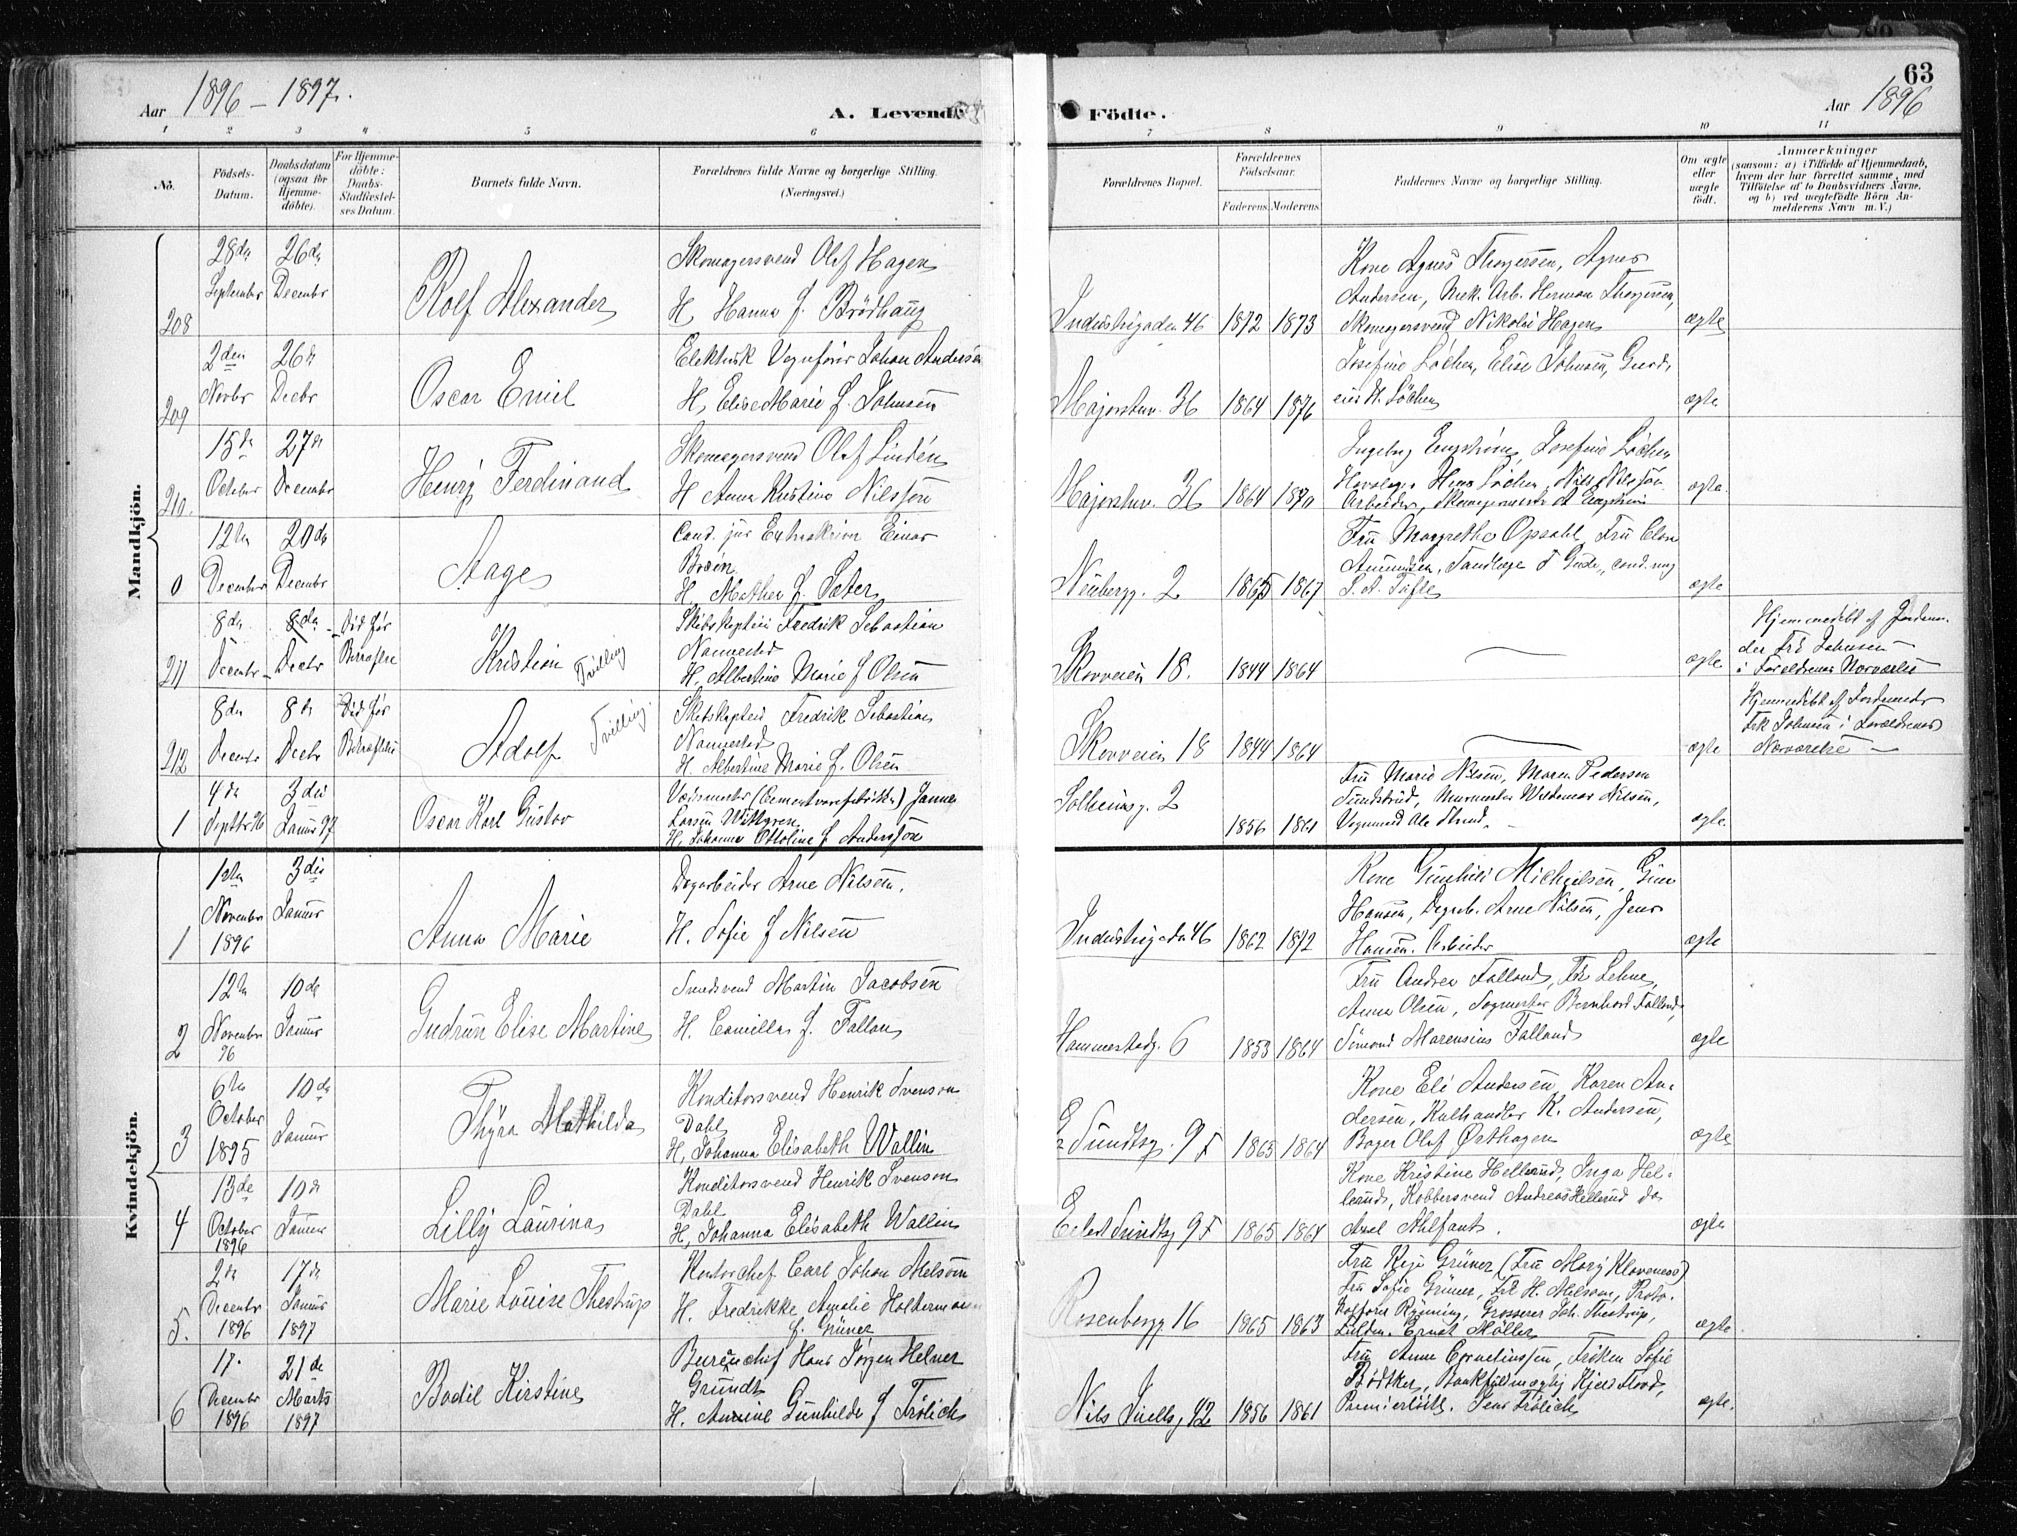 Aar 1896 – 1897. A. Levende
Födte. Aar 1896
63
1 2 3 4 5 6
7 8 9 10 11
No. Födsels-Datum. Daabsdatum (ogsaa for Hjemme-döbte). For Hjemme-döbte: Daabs-Stadfæstel-ses Datum. Barnets fulde Navn. Forældrenes fulde Navne og borgerlige Stilling. (Næringsvei.)
Forældrenes Bopæl. Forældrenes Födselsaar. Faderens. Moderens. Faddernes Navne og borgerlige Stilling. Om ægte eller uægte födt. Anmærkninger
(saasom: a) i Tilfælde af Hjemmedaab,
hvem der har forrettet samme, med
Tilföielse af to Daabsvidners Navne,
og b) ved uægtefödte Börn An-
melderens Navn m. V.)
Mandkjön.
208 28de September 26de Decembr Rolf Alexander
Skomagersvend Olaf Hagen
H. Hanna f. Brödhaug
Industrigaden 46 1872 1873
Kone Agnes Thorgersen, Agnes
Andersen, Mek. Arb. Herman Thorgersen,
Skomagersvend Nikolai Hagen
ægte
209 2den Novbr 26de Decbr Oscar Emil
Elektrisk Vognfører Johan Andersen
H. Elise Marie f. Johnsen
Majorstuv. 36 1864 1876
Josefine Löchen, Elise Johnsen, Gaard-
eier H. Löchen
ægte
210. 15de October 27de December Henry Ferdinand
Skomagersvend Olaf Lindén
H. Anna Kristine Nilsson
Majorstuv. 36 1864 1870
Ingeborg Engström, Josefine Löchen
Hans Löchen, Nils Nilsson
Arbeider, Skomagermester A. Engström
ægte
0 12te December 20de Decembr Aage
Cand. jur. Einar
Broën
H. Mathea f. Sæter
Neubergg. 2 1865 1867
Fru Margrethe Opsahl, Fru Elen
Amundsen, Tandlæge T. Gude, cand. mag
S. A. Tofte
ægte
211 8de Decembr 8de Decbr Död før Bekræftelse Kristian Tvilling
Skibskaptein Fredrik Sebastian
Nannestad
H. Albertine Marie f. Olsen
Skovveien 18. 1844 1864 ægte
Hjemmedöbt af Jordemo-
der Frk Johnsen
i Forældrenes Nærværelse
212 8de Decembr 8de Decbr Död før Bekræftelse Adolf Tvilling.
Skibskaptein Fredrik Sebastian
Nannestad
H. Albertine Marie f. Olsen
Skovveien 18 1844 1864 ægte
Hjemmedöbt af Jordemoder
Frk Johnsen i Forældrenes
Nærværelse –
1 4de Septbr 96 3die Januar 97 Oscar Karl Gustav
(Cementvarefabrikken) Janne
Larsen Wittgren
H. Johanna Ottoline f. Andersson
Solheimsg. 2 1856 1861
Fru Marie Nilsen, Maren Pedersen
Sundstrud, Murmester Waldemar Nilsen,
Vognmand Ole Strand.
ægte.
Kvindekjön.
1 1ste November 1896 3die Januar Anna Marie
Dagarbeider Arne Nilsen.
H. Sofie f. Nilsen
Industrigaden 46 1862 1872
Kone Gunhild Michelsen,
Hansen, Dagarb. Arne Nilsen, Jens
Hansen. Arbeider
ægte
2 12te November 96 10de Januar Gudrun Elise Martine
Smedsvend Martin Jacobsen
H. Camilla f. Falland
Hammerstadg. 6 1853 1864
Fru Andrea Falland, Frk Lehne,
Anna Olsen, Bernhard Falland,
Sömand Marensius Falland
ægte
3 6te October 1895 10de Januar Thyra Mathilde
Konditorsvend Henrik Svenson
Dahl
H. Johanna Elisabeth Wallin
E. Sundtsg. 9 F 1865 1864
Kone Eli Andersen, Karen An-
dersen, Kulhandler K. Andersen,
Bager Olaf Østhagen
ægte
4 13de October 1896 10de Januar Lilly Laurina
Konditorsvend Henrik Svenson
Dahl
H. Johanna Elisabeth Wallin
Eilert Sundtsg 9F 1865 1864
Kone Kristine Hellerud, Inga Hel-
lerud, Kobbersvend Andreas Hellerud do
Axel Ahlfant.
ægte
5. 2de December 1896 17de Januar 1897 Marie Louise Thestrup
Kontorchef Carl Johan Melsom
H. Fredrikke Amalie Holtermann
f. Grüner
Rosenbergg. 16 1865 1863
Fru Kaja Grüner (Fru Mary Klaveness)
Fru Sofie Grüner, Frk H. Melsom, Proto-
kolfører Rynning, Grosserer Joh. Thestrup,
Fuldm. Ernst Möller
ægte
6 17. December 1896 21de Marts 1897 Bodil Kirstine
Bureauchef Hans Jørgen Helner
Grundt
H. Annine Gunhilde f. Frölich
Nils Juelsg. 42 1856 1861
Fru Anna Corneliussen, Frøken Sofie
Bödtker, Bankfuldmægtig Kjeld Stord,
Premierlöitn. Jens Frölich
ægte.